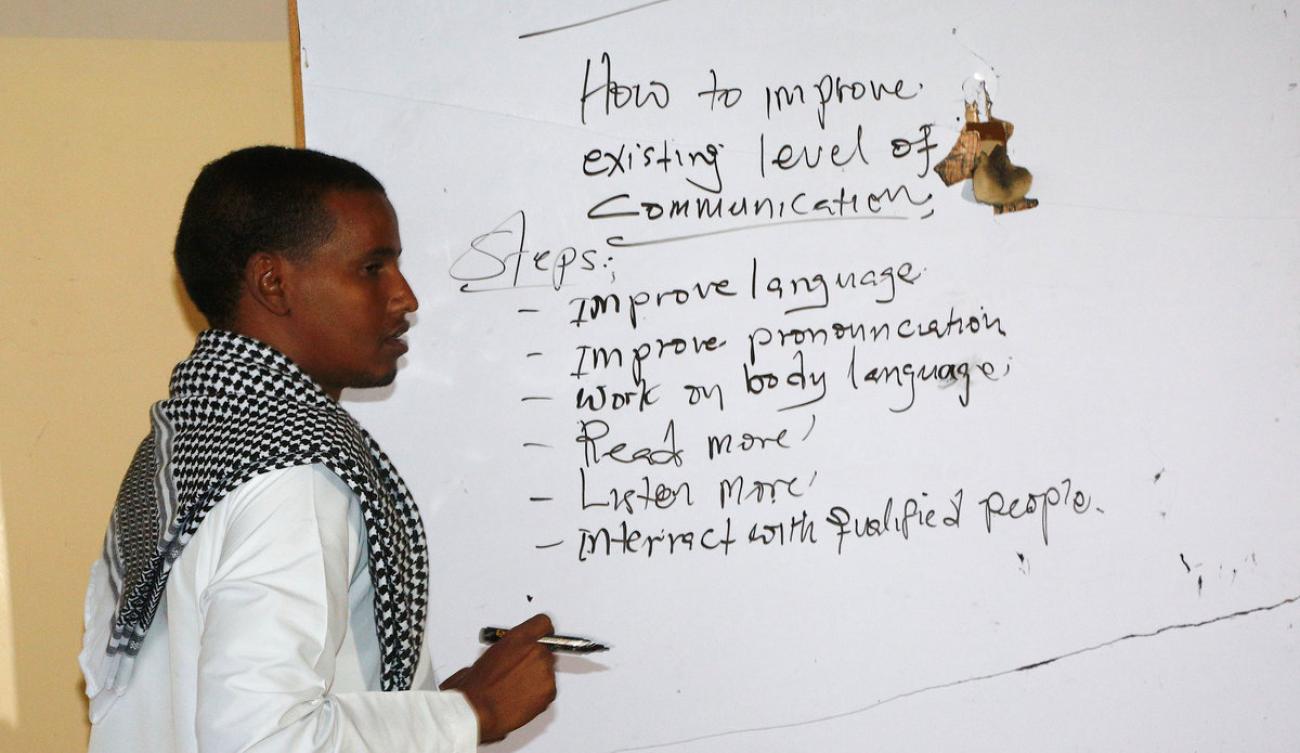 How to improve
existing level of
Communication;
Steps:;
- Improve language
- Improve pronounciation
- Work on body language;
- Read more
- Listen more
- Interract with qualified people.